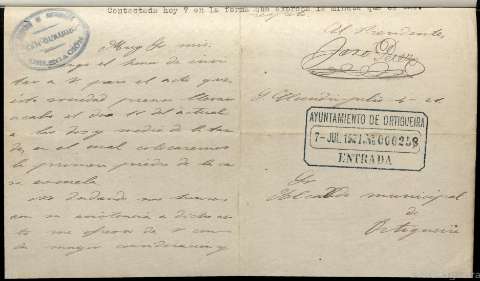 Contestada hoy 7 en la forma que expresa la minuta que se
Muy Sr. mio:
tengo el honor de invi
tar a V para el acto que
esta sociedad piensa llevar
a cabo el dia 10 del actual
a las dos y media de la tar
de, en el cual colocaremos
la primera piedra de la ca
sa escuela
No dudando nos honrará
con su asistencia a dicho ac
to me ofrezco de V con la
mayor consideracion y
El Presidente,
AYUNTAMIENTO DE ORTIGUEIRA
7-JUL.1921 Nº 000258
ENTRADA
Sr
Alcalde municipal
de
Ortigueira